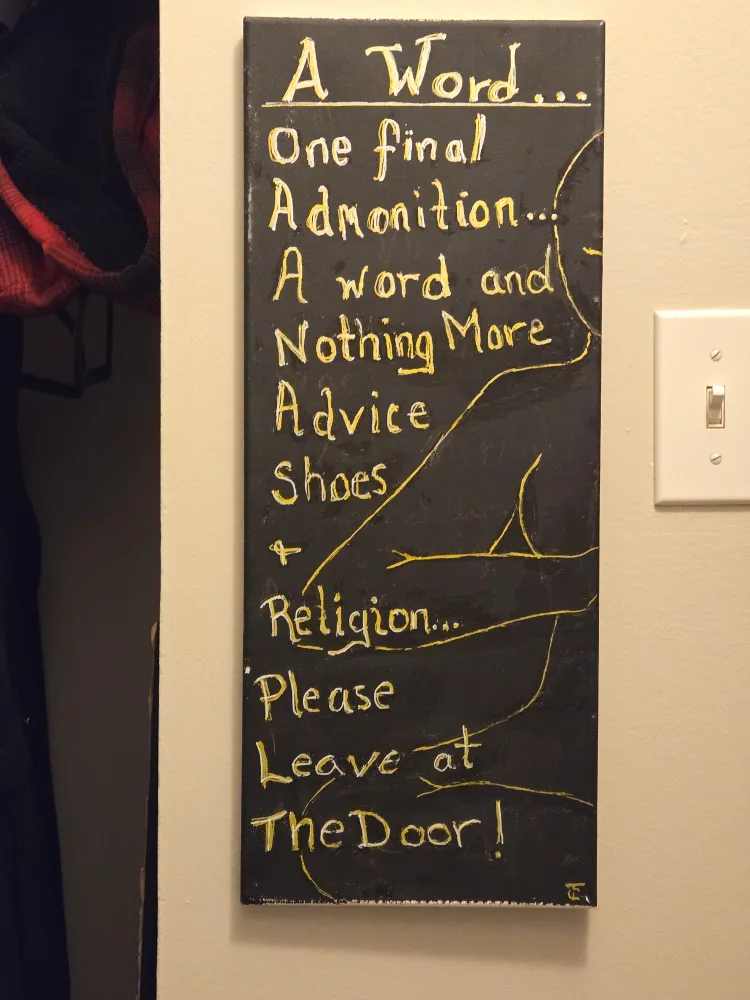 A Word...
One final
Admonition...
A word and
Nothing More
Advice
Shoes
&
Religion...
Please
Leave at
The Door!